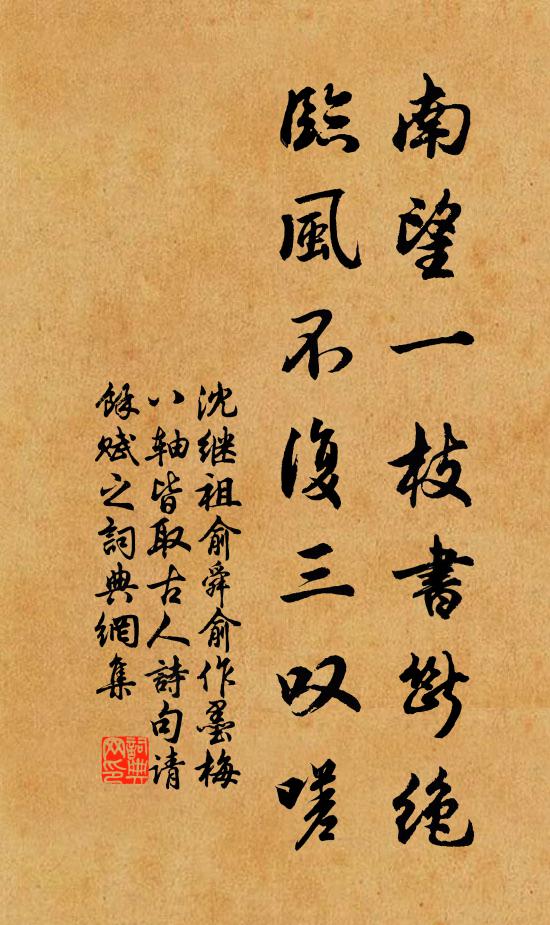 南望一枝書斷絶
臨風不復三叹嗟
沈继祖俞舜俞作墨梅
八轴皆取古人詩句请
餘赋之詞典網集
詞典網印